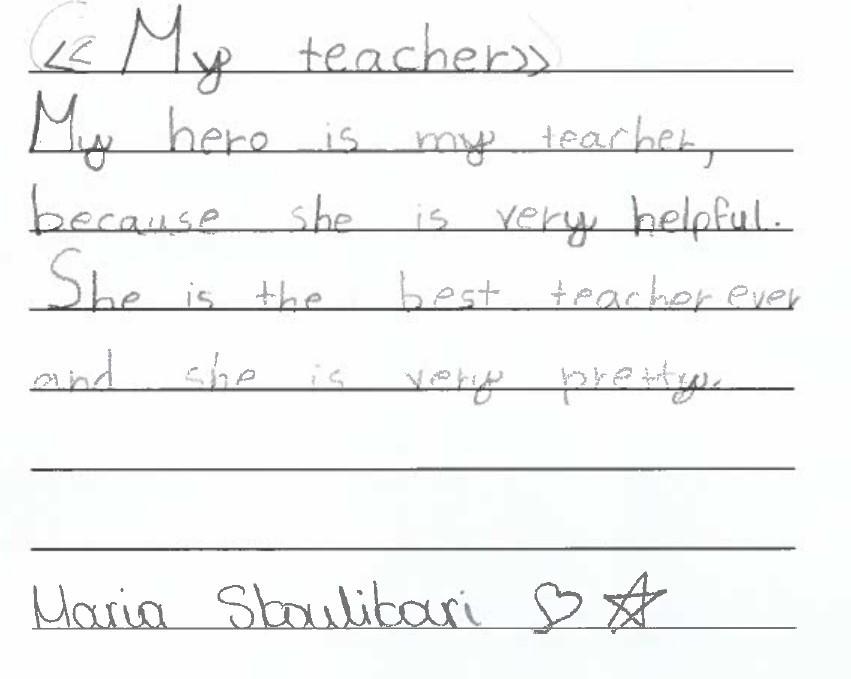 << My teacher>>
My hero is my teacher,
because she is very helpful.
She is the best teacher ever
and she is very pretty.
Maria